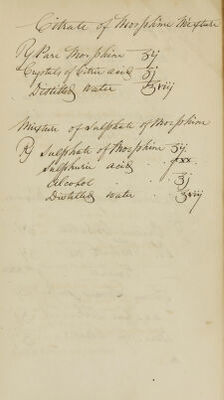 Citrate of Morphine Mixture
℞ Pure Morphine ʒij
Crystals of Citric acid ʒj
Distilled water ℥viij
Mixture of Sulphate of Morphine
℞ Sulphate of Morphine ʒij
Sulphuric acid . gxx.
Alcohol . . ℥j
Distilled water . ℥viij